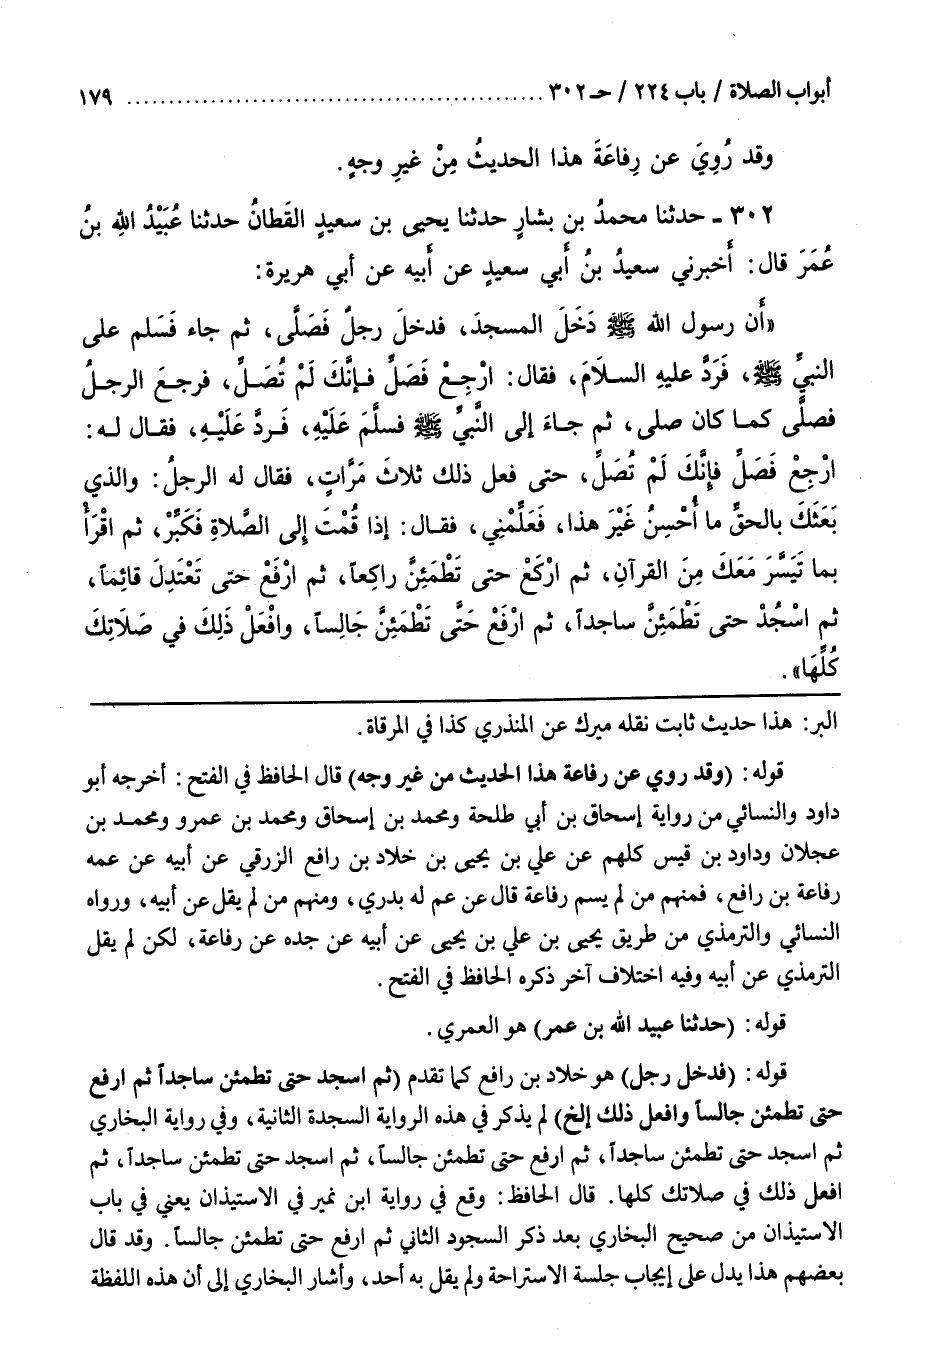 أبواب الصلاة / باب ٢٢٤ / حـ ٣٠٢ ................................................ ١٧٩
وقد رُوِيَ عن رِفاعَةَ هذا الحديثُ مِنْ غيرِ وجهٍ.
٣٠٢ ـ حدثنا محمدُ بن بشارٍ حدثنا يحيى بن سعيدٍ القَطانُ حدثنا عُبَيْدُ اللهِ بنُ
عُمَرَ قال: أَخبرني سعيدُ بنُ أَبي سعيدٍ عن أَبيه عن أبي هريرة:
«أَن رسول الله ﷺ دَخَلَ المسجدَ، فدخلَ رجلٌ فَصَلَّى، ثم جاء فَسَلم على
النبيِّ ﷺ، فَرَدَّ عليهِ السلاَمَ، فقال: ارْجِعْ فَصَلِّ فإنَّكَ لَمْ تُصَلِّ، فرجعَ الرجلُ
فصلَّى كما كان صلى، ثم جاءَ إلى النَّبيِّ ﷺ فسلَّمَ عَلَيْهِ، فَردَّ عَلَيْهِ، فقال له:
ارْجِعْ فَصَلِّ فإنَّكَ لَمْ تُصَلِّ، حتى فعل ذلك ثلاثَ مَرَّاتٍ، فقال له الرجلُ: والذي
بَعَثَكَ بالحقِّ ما أُحْسِنُ غَيْرَ هذا، فَعَلِّمْنِي، فقال: إذا قُمْتَ إلى الصَّلاةِ فَكَبِّرْ، ثم اقْرَأْ
بما تَيَسَّرَ مَعَكَ مِنَ القرآنِ، ثم ارْكَعْ حتى تَطْمَئِنَّ راكِعاً، ثم ارْفَعْ حتى تَعْتَدِلَ قائِماً،
ثم اسْجُدْ حتى تَطْمَئِنَّ ساجداً، ثم ارْفَعْ حَتَّى تَطْمَئِنَّ جَالِساً، وافْعَلْ ذَلِكَ في صَلاَتِكَ
كُلِّهَا».
البر: هذا حديث ثابت نقله ميرك عن المنذري كذا في المرقاة.
قوله: (وقد روي عن رفاعة هذا الحديث من غير وجه) قال الحافظ في الفتح: أخرجه أبو
داود والنسائي من رواية إسحاق بن أبي طلحة ومحمد بن إسحاق ومحمد بن عمرو ومحمد بن
عجلان وداود بن قيس كلهم عن علي بن يحيى بن خلاد بن رافع الزرقي عن أبيه عن عمه
رفاعة بن رافع، فمنهم من لم يسم رفاعة قال عن عم له بدري، ومنهم من لم يقل عن أبيه، ورواه
النسائي والترمذي من طريق يحيى بن علي بن يحيى عن أبيه عن جده عن رفاعة، لكن لم يقل
الترمذي عن أبيه وفيه اختلاف آخر ذكره الحافظ في الفتح.
قوله: (حدثنا عبيد الله بن عمر) هو العمري.
قوله: (فدخل رجل) هو خلاد بن رافع كما تقدم (ثم اسجد حتى تطمئن ساجداً ثم ارفع
حتى تطمئن جالساً وافعل ذلك إلخ) لم يذكر في هذه الرواية السجدة الثانية، وفي رواية البخاري
ثم اسجد حتى تطمئن ساجداً، ثم ارفع حتى تطمئن جالساً، ثم اسجد حتى تطمئن ساجداً، ثم
افعل ذلك في صلاتك كلها. قال الحافظ: وقع في رواية ابن نمير في الاستيذان يعني في باب
الاستيذان من صحيح البخاري بعد ذكر السجود الثاني ثم ارفع حتى تطمئن جالساً. وقد قال
بعضهم هذا يدل على إيجاب جلسة الاستراحة ولم يقل به أحد، وأشار البخاري إلى أن هذه اللفظة